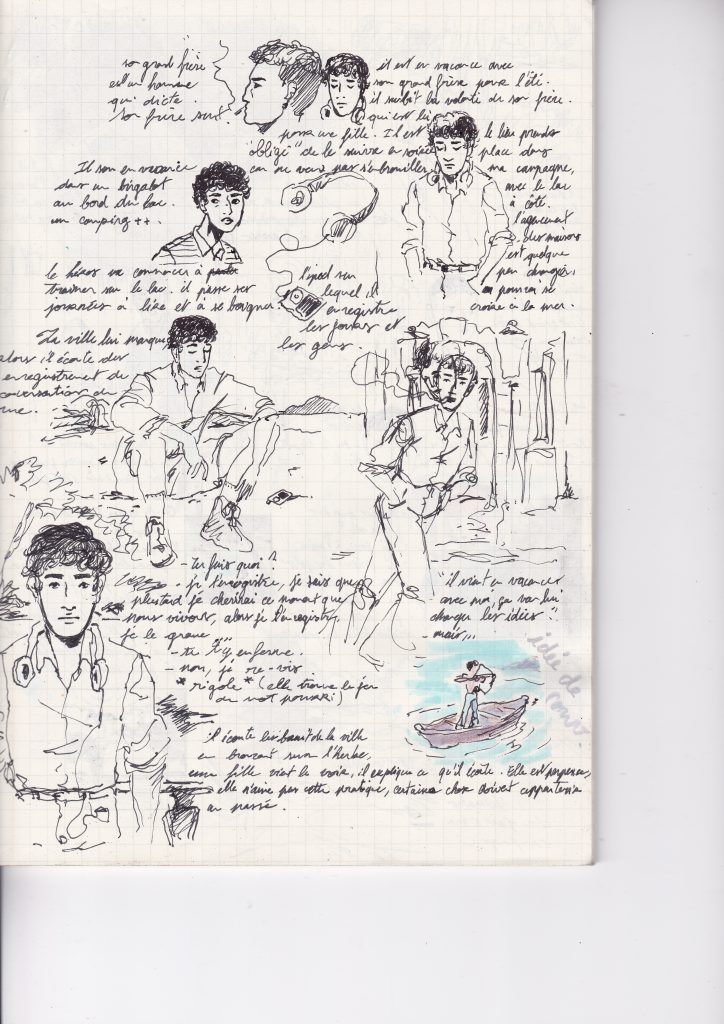 son grand frère
est un homme
qui dicte
son frère suit.
il est en vacance avec
son grand frère pour l'été.
il subit la volonté de son frère.
qui est là
pour une fille. Il est
"obligé" de le suivre en soirée
car ne veut pas s'embrouiller
le lieu prends
place dans
ma campagne,
avec le lac
à côté.
l'agencement
des maisons
est quelque
peu changer,
on pourrai se
croire à la mer.
Il son en vacance
dans un
au bord du lac.
un camping ++.
le héros va commencer à
trainer sur le lac. il passe ses
journées à lire et à se baigner.
l'ipod sur
lequel il
enregistre
les sons et
les gens.
La ville lui manque
alors il écoute des
enregistrement de
conversations de
rue.
- tu fais quoi ?
- je t'enregistre, je sais que
plus tard je cherirai ce moment que
nous vivons, alors je l'enregistre,
je le grave
- tu t'y enferme.
- non, je re-vis
*rigole* (elle trouve le jeu
de mot pourri)
"il vient en vacances
avec moi, ça va lui
changer les idées"
- mais...
idée de
il écoute les bruit de la ville
en bronzant sur l'herbe.
une fille vient le voir, il explique ce qu'il écoute. Elle est perplexe,
elle n'aime pas cette pratique, certaine chose doivent appartenir
au passé.